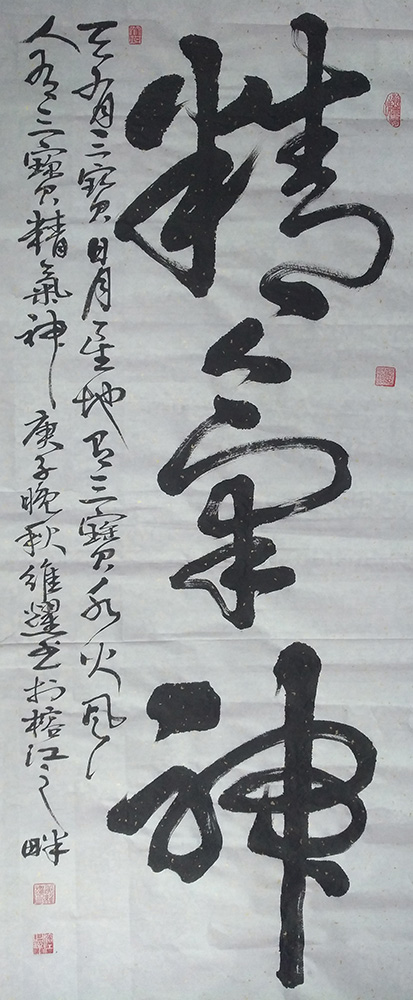 精氣神
天有三寶日月星地有三寶水火風
人有三寶精氣神庚子晚秋維耀書於榕江之畔